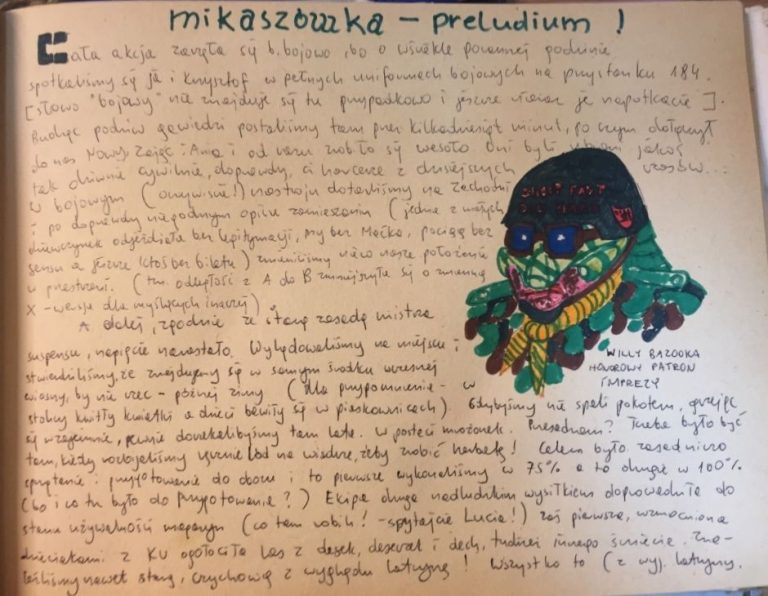 mikaszówka – preludium !
Cała akcja zaczęła się b. bojowo, bo o wściekle porannej godzinie
spotkaliśmy się ja i Krzysztof w pełnych uniformach bojowych na przystanku 184.
[słowo "bojowy" nie znajduje się tu przypadkowo i jeszcze nieraz je napotkacie].
Budząc podziw gawiedzi postaliśmy tam przez kilkadziesiąt minut, po czym dołączył
do nas Nowy Zając i Ania i od razu zrobiło się wesoło. Oni byli ubrani jakoś
tak dziwnie cywilnie, doprawdy, ci harcerze z dzisiejszych czasów...
W bojowym (oczywiście!) nastroju dotarliśmy na Zachodni
i po doprawdy niegodnym opisu zamieszaniu (jedna z małych
dziewczynek odjeżdżała bez legitymacji, my bez Maćka, pociąg bez
sensu a jeszcze ktoś bez biletu) zmieniliśmy nieco nasze położenie
w przestrzeni. (tzn. odległość z A do B zmniejszyła się o zmienną
X – wersja dla myślących inaczej)
A dalej, zgodnie ze starą zasadą mistrza
suspensu, napięcie narastało. Wylądowaliśmy na miejscu i
stwierdziliśmy, że znajdujemy się w samym środku wczesnej
wiosny, by nie rzec – późnej zimy (dla przypomnienia – w
stolicy kwitły kwiatki a dzieci bawiły się w piaskownicach). Gdybyśmy nie spali pokotem, grzejąc
się wzajemnie, pewnie doczekalibyśmy tam lata. W postaci mrożonek. Przesadzam? Trzeba było być
tam, kiedy rozbijaliśmy ręcznie lód na wiadrze, żeby zrobić herbatę! Celem było zasadniczo
sprzątanie i przygotowanie do obozu i to pierwsze wykonaliśmy w 75% a to drugie w 100%
(bo i co tu było do przygotowania?) Ekipa druga nadludzkim wysiłkiem doprowadziła do
stanu używalności magazyn (co tam robili! – spytajcie Lucia!) zaś pierwsza, wzmocniona
dzieciakami z KU ogołociła las z desek, deszczek i dech, tudzież innego śmiecia. Zna-
leźliśmy nawet starą, czcigodną z wyglądu latrynę! Wszystko to (z wyj. latryny,
SHOOT FAST
DIE HARD
WILLY BAZOOKA
HONOROWY PATRON
IMPREZY